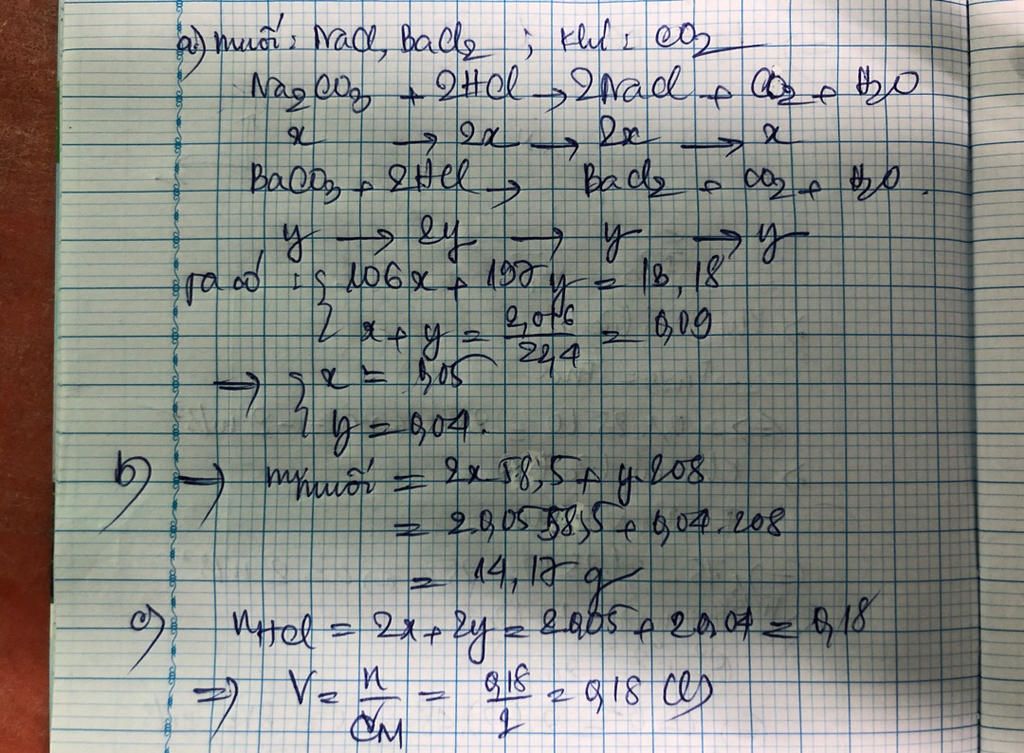 a) muối : NaCl, BaCl₂ ; khí : CO₂
Na₂CO₃ + 2HCl → 2NaCl + CO₂ + H₂O
x → 2x → 2x → x
BaCO₃ + 2HCl → BaCl₂ + CO₂ + H₂O.
y → 2y → y → y
Ta có : { 106x + 197y = 13,18
x + y = 2,016/22,4 = 0,09
→ { x = 0,05
y = 0,04.
b) → m muối = 2x 58,5 + y.208
= 2.0,05 58,5 + 0,04.208
= 14,17 g
c) nHCl = 2x + 2y = 2.0,05 + 2.0,04 = 0,18
⇒ V = n/CM = 0,18/1 = 0,18 (l)